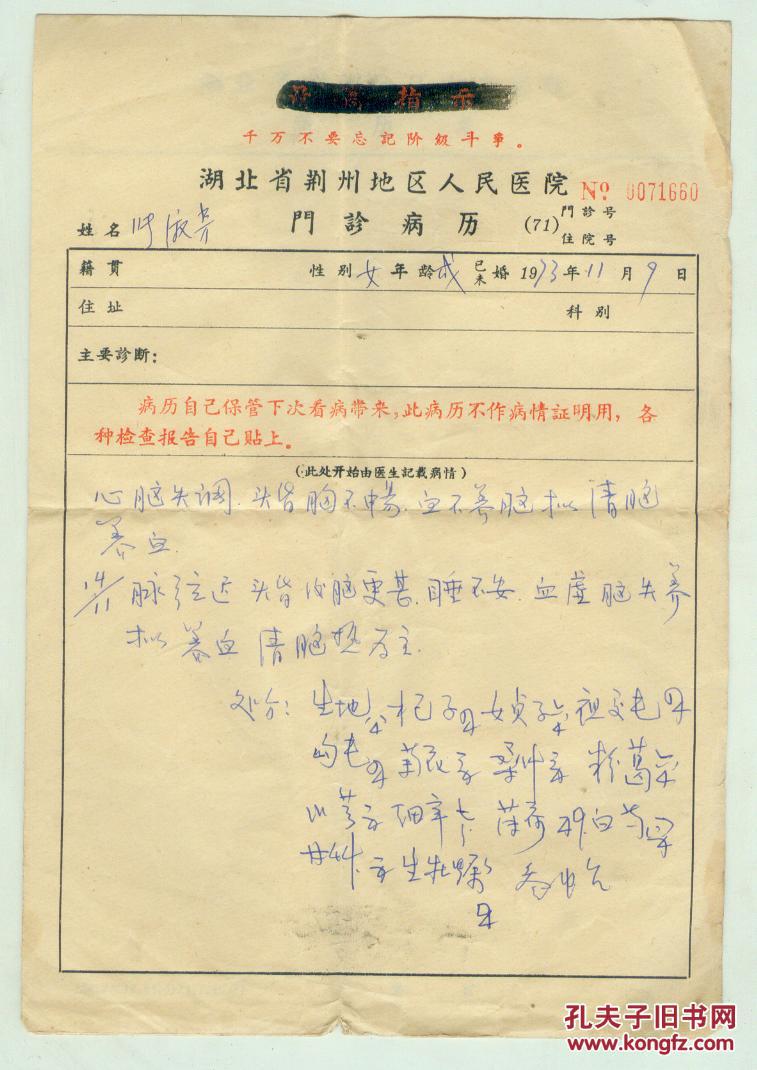 最高指示
千万不要忘記阶級斗爭。
湖北省荆州地区人民医院 № 0071660
門診病历 (71) 門診号 住院号
姓名 淑芳
籍贯 性别 女 年龄 成 已未婚 1973年11月9日
住址 科别
主要診断:
病历自己保管下次看病帶来,此病历不作病情証明用,各
种检查报告自己貼上。
(此处开始由医生記載病情)
心脑失调.头昏胸不畅.血不养脑拟清脑
养血.
14/11 脉弦迟 头昏 脑更甚.睡不安.血虚脑失养
拟养血清脑 为主.
处方: 生地 杞子 女贞子
菊花 桑叶 粉葛
川芎 细辛 薄荷 白芍
甘草 生牡蛎
孔夫子旧书网
www.kongfz.com